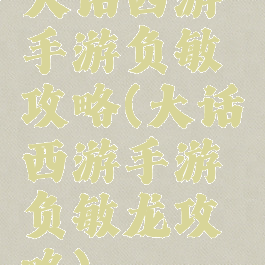 大话西游
手游负敏
攻略(大话
西游手游
负敏龙攻
略)